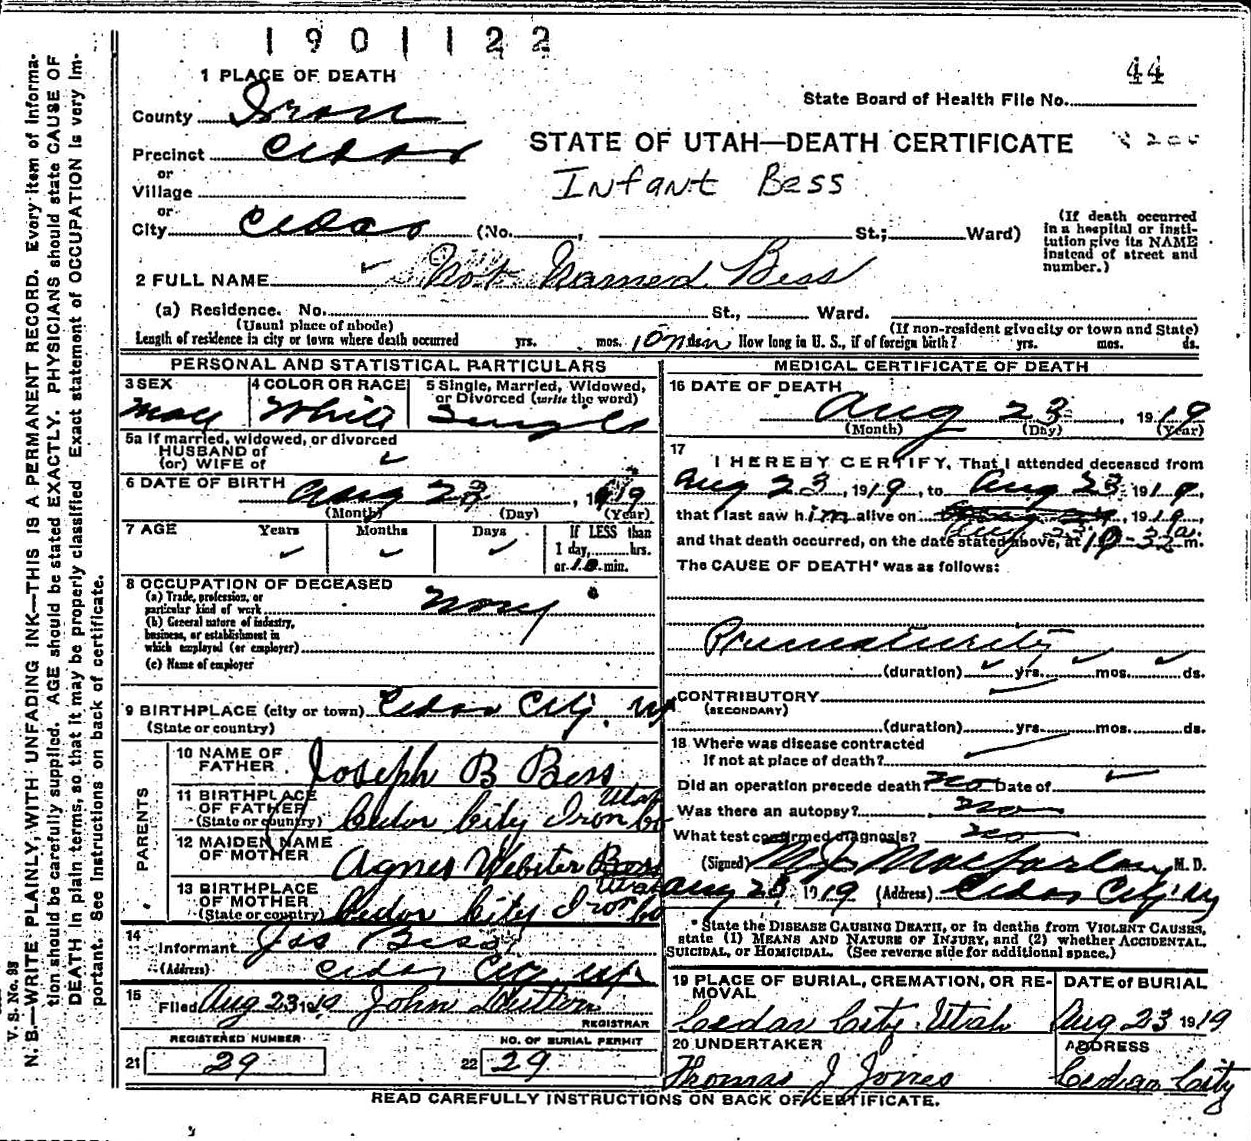 1901122
44
1 PLACE OF DEATH
State Board of Health File No.
County Iron
STATE OF UTAH—DEATH CERTIFICATE
Precinct Cedar
or
Village
Infant Bess
or
City Cedar (No. , St.; Ward)
(If death occurred in a hospital or insti-
tution give its NAME
instead of street and
number.)
2 FULL NAME Not Named Bess
(a) Residence. No. St., Ward.
(Usual place of abode) (If non-resident give city or town and State)
Length of residence in city or town where death occurred yrs. mos. 10 min How long in U. S., if of foreign birth? yrs. mos. ds.
PERSONAL AND STATISTICAL PARTICULARS
3 SEX 4 COLOR OR RACE 5 Single, Married, Widowed,
or Divorced (write the word)
Male White Single
5a If married, widowed, or divorced
HUSBAND of
(or) WIFE of
6 DATE OF BIRTH Aug 23, 1919
(Month) (Day) (Year)
7 AGE Years Months Days If LESS than
1 day, hrs.
or 10 min.
8 OCCUPATION OF DECEASED
(a) Trade, profession, or
particular kind of work
(b) General nature of industry,
business, or establishment in
which employed (or employer)
(c) Name of employer
9 BIRTHPLACE (city or town) Cedar City, Ut
(State or country)
PARENTS
10 NAME OF
FATHER Joseph B Bess
11 BIRTHPLACE
OF FATHER
(State or country) Cedar City Iron Co Utah
12 MAIDEN NAME
OF MOTHER Agnes Webster Bess
13 BIRTHPLACE
OF MOTHER
(State or country) Cedar City Iron Co Utah
14
Informant Jos Bess
(Address) Cedar City Ut
15
Filed Aug 23 1919 John
REGISTRAR
REGISTERED NUMBER NO. OF BURIAL PERMIT
21 29 22 29
MEDICAL CERTIFICATE OF DEATH
16 DATE OF DEATH
Aug 23, 1919
(Month) (Day) (Year)
17
I HEREBY CERTIFY, That I attended deceased from
Aug 23, 1919, to Aug 23, 1919,
that I last saw him alive on Aug 23, 1919,
and that death occurred, on the date stated above, at 10-32 a. m.
The CAUSE OF DEATH* was as follows:
Prematurity
(duration) yrs. mos. ds.
CONTRIBUTORY
(SECONDARY)
(duration) yrs. mos. ds.
18 Where was disease contracted
If not at place of death?
Did an operation precede death? no Date of
Was there an autopsy? no
What test confirmed diagnosis? no
(Signed) M J Macfarlane, M. D.
Aug 23, 1919 (Address) Cedar City Ut
* State the DISEASE CAUSING DEATH, or in deaths from VIOLENT CAUSES,
state (1) MEANS AND NATURE OF INJURY, and (2) whether ACCIDENTAL,
SUICIDAL, or HOMICIDAL. (See reverse side for additional space.)
19 PLACE OF BURIAL, CREMATION, OR RE-
MOVAL
DATE of BURIAL
Cedar City Utah Aug 23 1919
20 UNDERTAKER ADDRESS
Thomas J Jones Cedar City
READ CAREFULLY INSTRUCTIONS ON BACK OF CERTIFICATE.
V. S. No.
N. B.—WRITE PLAINLY, WITH UNFADING INK—THIS IS A PERMANENT RECORD. Every item of informa-
tion should be carefully supplied. AGE should be stated EXACTLY. PHYSICIANS should state CAUSE OF
DEATH in plain terms, so that it may be properly classified. Exact statement of OCCUPATION is very im-
portant. See instructions on back of certificate.